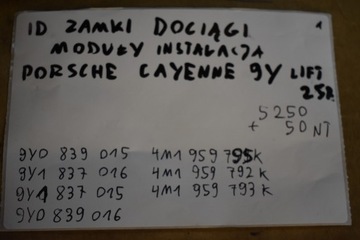 1D ZAMKI DOCIĄGI 1
MODUŁY INSTALACJA
PORSCHE CAYENNE 9Y LIFT
25R
5250
+ 50 NT
9Y0 839 015 4M1 959 795K
9Y1 837 016 4M1 959 792K
9Y1 837 015 4M1 959 793K
9Y0 839 016